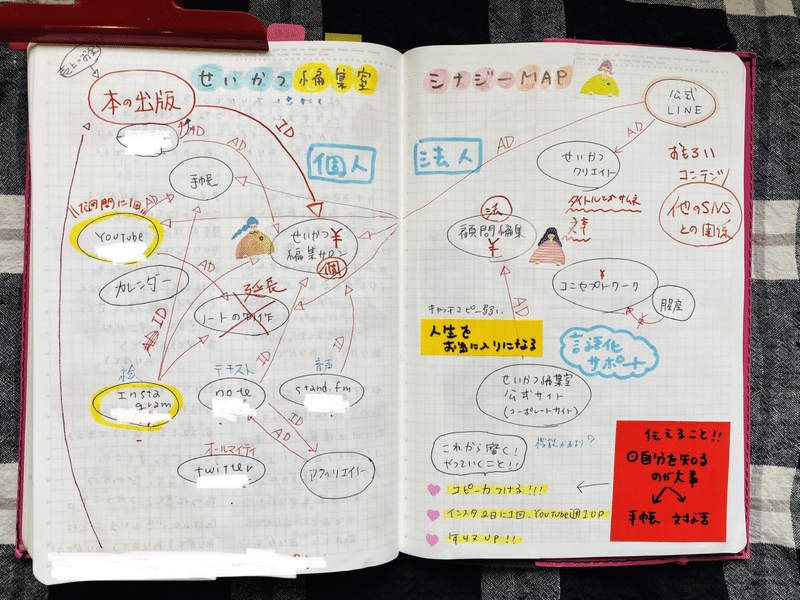 せいかつ編集室
本の出版
ID
AD
AD
個人
手帳
1週間に1回
AD
YouTube
せいかつ
¥
編集サロン
個
カレンダー
AD
延長
ノートの制作
ID
ID
ID
絵
テキスト
音声
Insta
gram
note
stand.fm
ID
AD
オールマイティ
twitter
アフィリエイト
シナジーMAP
公式
LINE
AD
AD
法人
せいかつ
クリエイト
おもろい
コンテンツ
タイトルとかサムネ
大事
他のSNS
との関係
法
顧問編集
¥
¥
コンセプトワーク
¥
AD
キャッチコピー弱い、
人生を
お気に入りになる
言語化
サポート
せいかつ編集室
公式サイト
(コーポレートサイト)
これから磨く!
やっていくこと!!
コピー力つける!!!
インスタ2日に1回、YouTube週1UP
年収UP!!
伝えること!!
◎自分を知る
のが大事
手帳 対話